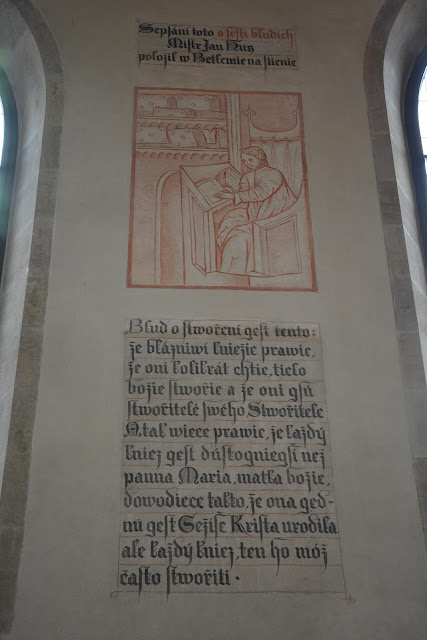 Sepsání toto o šesti bludiech
Mistr Jan Hus
položil w Betlemie na stienie
Blud o stwoření gest tento:
že blázniwí kniežie prawie,
že oni kolikrát chtie, tielo
božie stwořie a že oni gsú
stwořitelé swého Stwořitele
A tak wiece prawie, že každý
kniez gest dústogniegší než
panna Maria, matka božie,
dowodiece takto, že ona ged-
nú gest Gežíše Krista urodila
ale každý kniez, ten ho móž
často stwořiti .